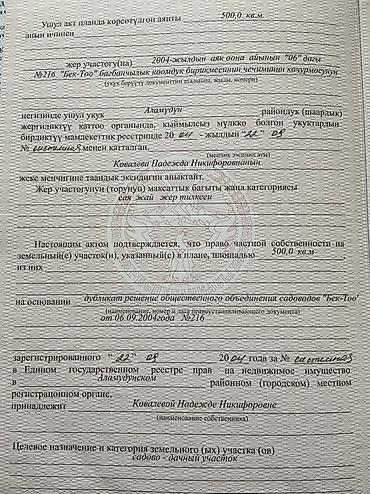 Ушул акт планда көрсөтүлгөн аянты 500,0 кв.м.
анын ичинен
жер участогу(на) 2004-жылдын аяк оона айынын "06" дагы
№216 "Бек-Тоо" багбанчылык коомдук бирикмесинин чечиминин көчүрмөсүнүн
(укук берүүчү документтин аталышы, жылы, номери)
негизинде ушул укук Аламүдүн райондук (шаардык)
жергиликтүү каттоо органында, кыймылсыз мүлккө болгон укуктардын
бирдиктүү мамлекеттик реестринде 2004 - жылдын "22" 09
№ менен катталган,
Ковалева Надежда Никифоровнанын
(менчик ээсинин аты)
жеке менчигине таандык экендигин аныктайт.
Жер участогунун (торунун) максаттык багыты жана категориясы
сая жай жер тилкеси
Настоящим актом подтверждается, что право частной собственности на
земельный(е) участок(и), указанный(е) в плане, площадью 500,0 кв.м
из них
на основании дубликат решение общественного объединения садоводов "Бек-Тоо'
(наименование, номер и дата правоустанавливающего документа)
от 06.09.2004года №216
зарегистрированного "22" 09 2004 года за №
в Едином государственном реестре прав на недвижимое имущество
в Аламудунском районном (городском) местном
регистрационном органе,
принадлежит Ковалевой Надежде Никифоровне
(наименование собственника)
Целевое назначение и категория земельного (ых) участка (ов)
садово - дачный участок